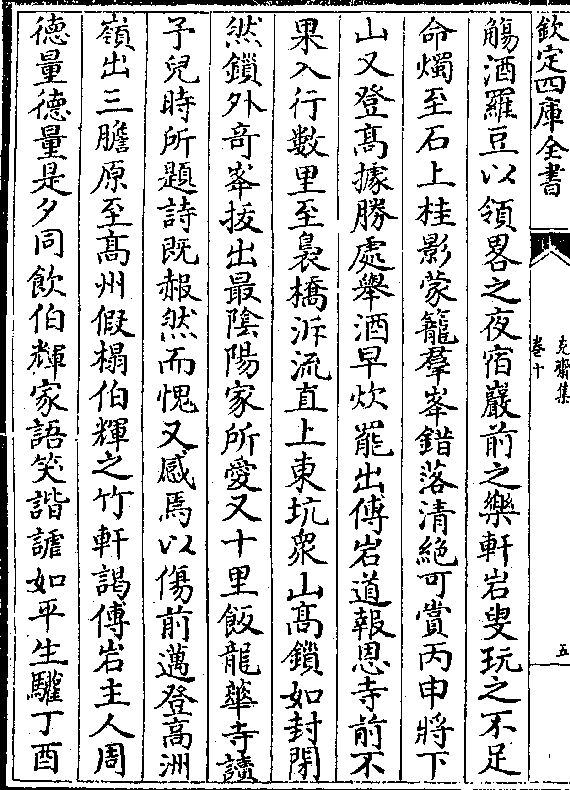 欽定四庫全書
克齋集
卷十
五
觴酒羅豆以領畧之夜宿巖前之樂軒岩叟玩之不足
命燭至石上桂影蒙籠羣峯錯落清絶可賞丙申將下
山又登髙據勝處舉酒早炊罷出傅岩道報恩寺前不
果入行數里至裊橋泝流直上東坑衆山髙鎖如封閉
然鎖外奇峯拔出最陰陽家所愛又十里飯龍華寺讀
予兒時所題詩既赧然而愧又感焉以傷前邁登髙洲
嶺出三膽原至髙州假榻伯輝之竹軒謁傅岩主人周
徳量徳量是夕同飲伯輝家語笑諧謔如平生驩丁酉